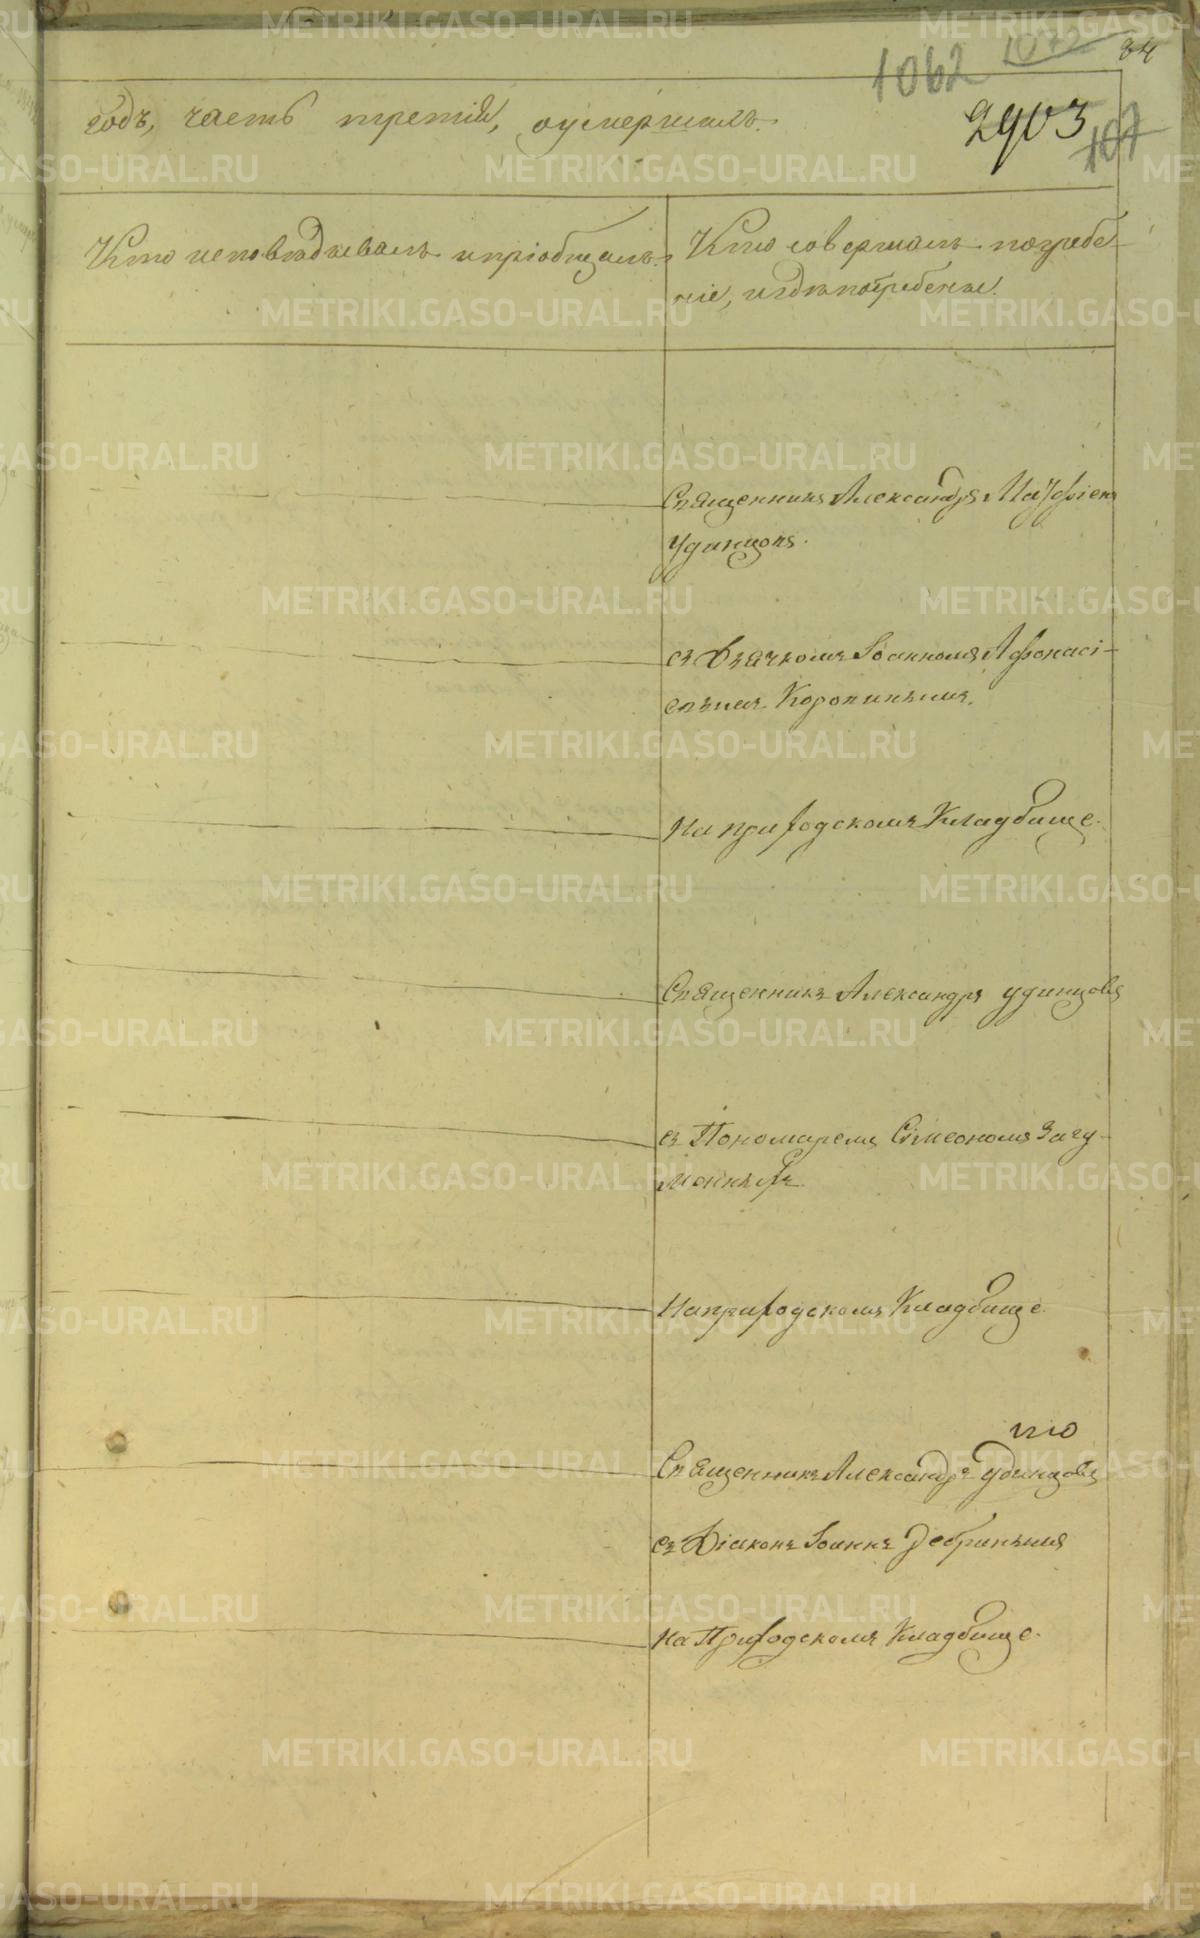 1062 1072 84
годъ, часть третія, оумершихъ.
2903
107
Кто исповѣдывалъ и пріобщалъ.
Кто совершалъ погребе-
ніе, и гдѣ погребены.
Священникъ Александръ
Удинцовъ.
съ Дьячкомъ Іоанномъ Афонасі-
евымъ Коровинымъ.
На приходскомъ Кладбище.
Священникъ Александръ Удинцовъ
съ Пономаремъ Сімеономъ Загу-
менныхъ
На приходскомъ Кладбище
Священникъ Александръ Удинцовъ
съ Діаконъ Іоаннъ Дебринымъ
На Приходскомъ Кладбище.
METRIKI.GASO-URAL.RU